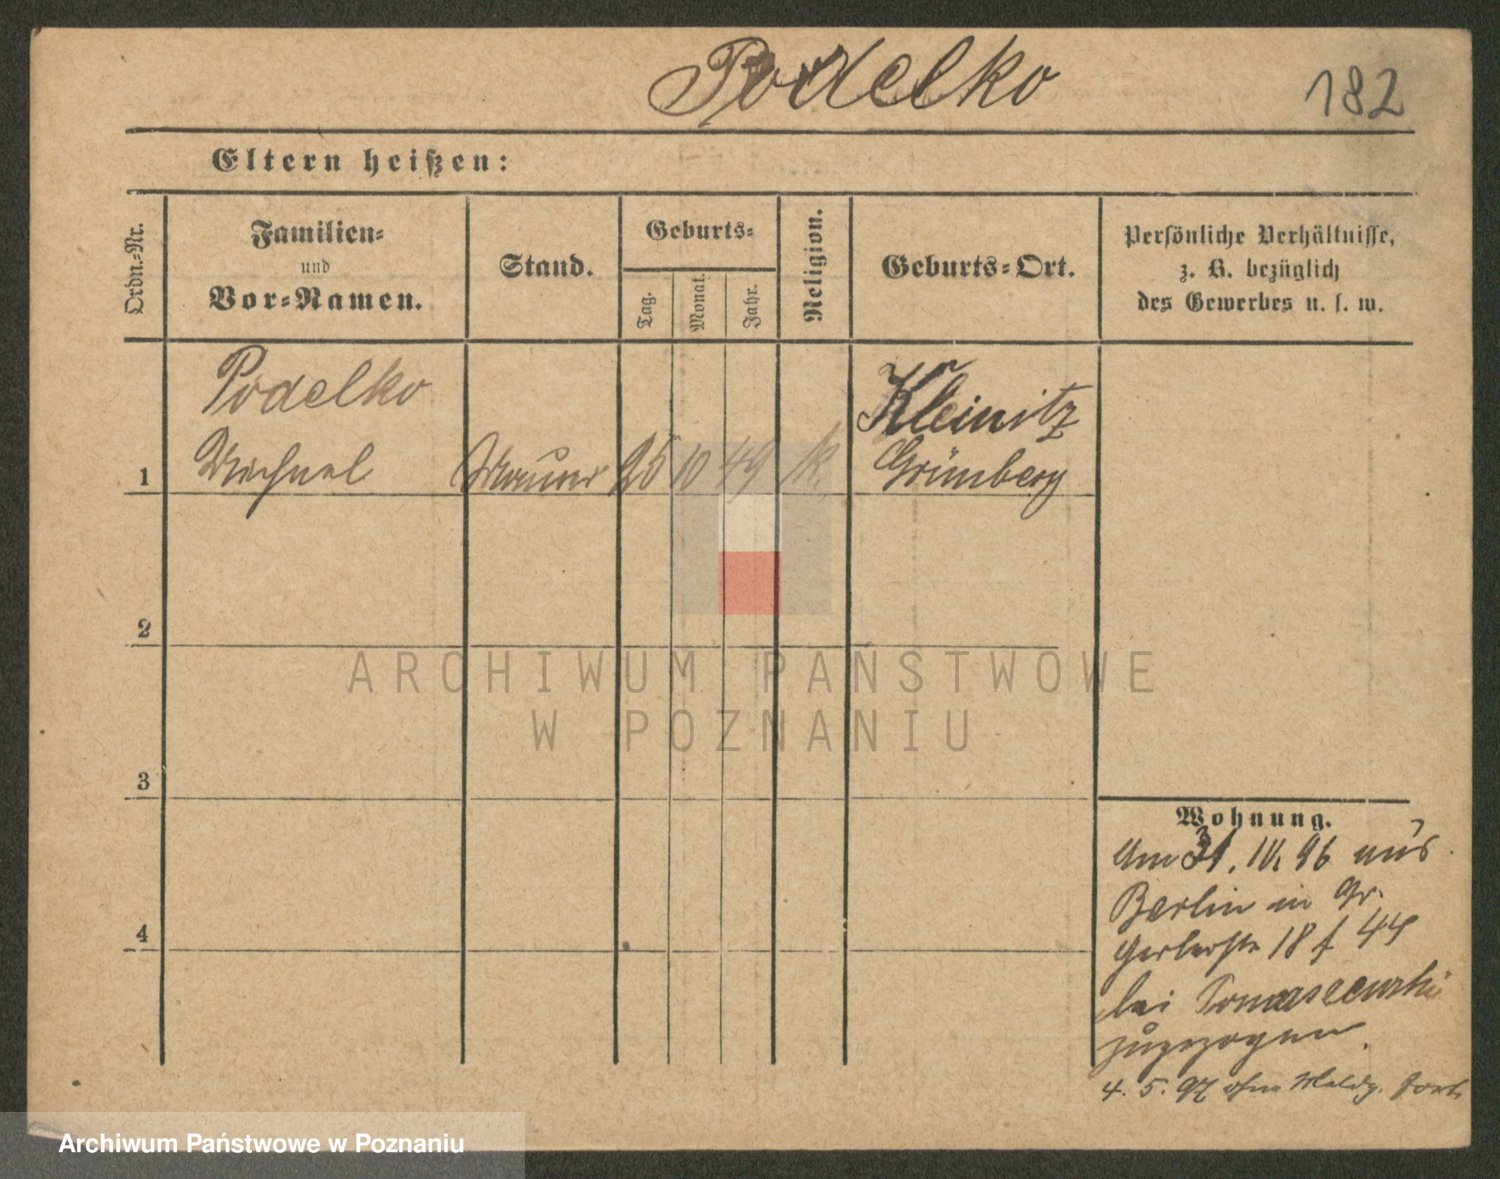 Podelko
182
Eltern heißen:
Ordn.-Nr.
Familien-
und
Vor-Namen.
Stand.
Geburts-
Tag.
Monat.
Jahr.
Religion.
Geburts-Ort.
Persönliche Verhältnisse,
z. B. bezüglich
des Gewerbes u. s. w.
Podelko
Michael
Maurer
25
10
49
k.
Kleinitz
Grünberg
1
2
3
4
ARCHIWUM PAŃSTWOWE
W POZNANIU
Wohnung.
Am 31. 10. 96 aus
Berlin in Gr.
Gerberstr 18 f 44
bei
zugezogen.
4. 5. 97 ohne Meldg. fort
Archiwum Państwowe w Poznaniu